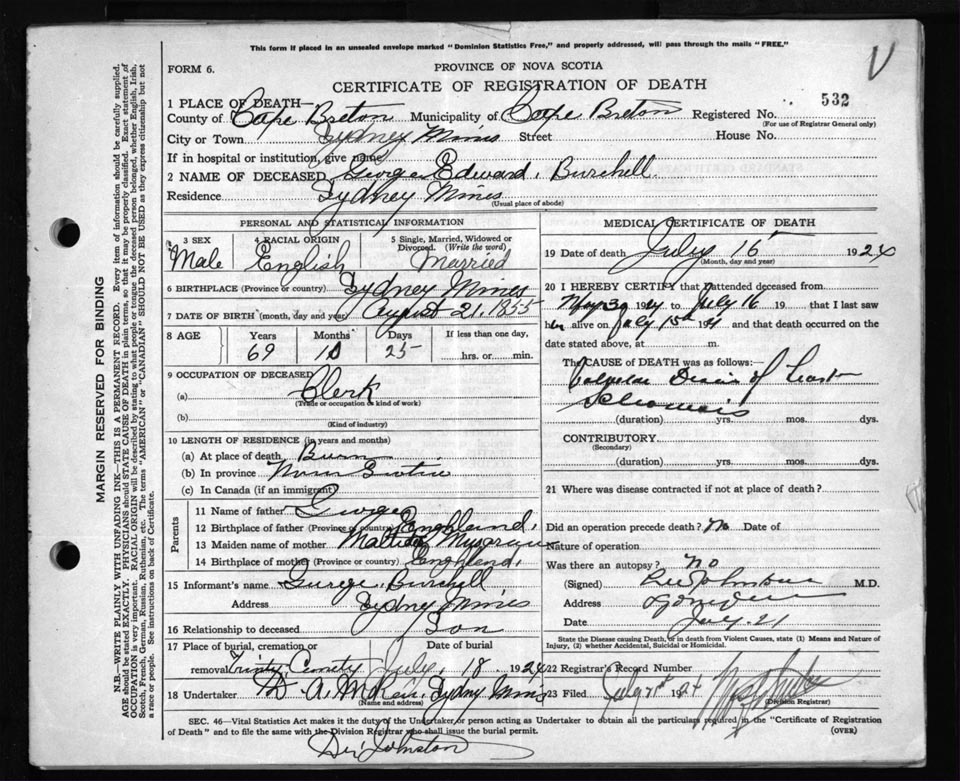 This form if placed in an unsealed envelope marked "Dominion Statistics Free," and properly addressed, will pass through the mails "FREE."
V
FORM 6.
PROVINCE OF NOVA SCOTIA
CERTIFICATE OF REGISTRATION OF DEATH
532
1 PLACE OF DEATH—
County of Cape Breton Municipality of Cape Breton Registered No.
(For use of Registrar General only)
City or Town Sydney Mines Street House No.
If in hospital or institution, give name
2 NAME OF DECEASED George Edward Burchell
Residence Sydney Mines
(Usual place of abode)
PERSONAL AND STATISTICAL INFORMATION
3 SEX 4 RACIAL ORIGIN 5 Single, Married, Widowed or Divorced. (Write the word)
Male English Married
6 BIRTHPLACE (Province or country) Sydney Mines
7 DATE OF BIRTH (month, day and year) August 21, 1855
8 AGE Years Months Days If less than one day,
69 10 25 hrs. or min.
9 OCCUPATION OF DECEASED
(a) Clerk
(Trade or occupation or kind of work)
(b)
(Kind of industry)
10 LENGTH OF RESIDENCE (in years and months)
(a) At place of death Burn
(b) In province Nova Scotia
(c) In Canada (if an immigrant)
Parents
11 Name of father George
12 Birthplace of father (Province or country) Enghland.
13 Maiden name of mother Matilda
14 Birthplace of mother (Province or country) Enghland.
15 Informant's name George Burchell
Address Sydney Mines
16 Relationship to deceased Son
17 Place of burial, cremation or removal Date of burial
Trinity Cemety July 18. 1924
18 Undertaker Sydney Mines
(Name and address)
MEDICAL CERTIFICATE OF DEATH
19 Date of death July 16 1924
(Month, day and year)
20 I HEREBY CERTIFY that I attended deceased from
May 30 1924 to July 16 19 that I last saw
h alive on July 15th and that death occurred on the
date stated above, at m.
The CAUSE of DEATH was as follows:—
Disease of heart
(duration) yrs. mos. dys.
CONTRIBUTORY
(Secondary)
(duration) yrs. mos. dys.
21 Where was disease contracted if not at place of death?
Did an operation precede death? No Date of
Nature of operation
Was there an autopsy? No
(Signed) Johnstone M.D.
Address
July 21
State the Disease causing Death, or in death from Violent Causes, state (1) Means and Nature of Injury, (2) whether Accidental, Suicidal or Homicidal.
22 Registrar's Record Number
23 Filed July 21st 1924
(Division Registrar)
SEC. 46—Vital Statistics Act makes it the duty of the Undertaker or person acting as Undertaker to obtain all the particulars required in the "Certificate of Registration
of Death" and to file the same with the Division Registrar who shall issue the burial permit.
(OVER)
Dr. Johnston
MARGIN RESERVED FOR BINDING
N.B.—WRITE PLAINLY WITH UNFADING INK—THIS IS A PERMANENT RECORD. Every item of information should be carefully supplied.
AGE should be stated EXACTLY. PHYSICIANS should STATE CAUSE OF DEATH in plain terms, so that it may be properly classified. Exact statement of
OCCUPATION is very important. RACIAL ORIGIN will be described by stating to what people or tongue the deceased person belonged, whether English, Irish,
Scotch, French, German, Russian, Ruthenian, etc. The terms "AMERICAN" or "CANADIAN" SHOULD NOT BE USED as they express citizenship but not
a race or people. See instructions on back of Certificate.